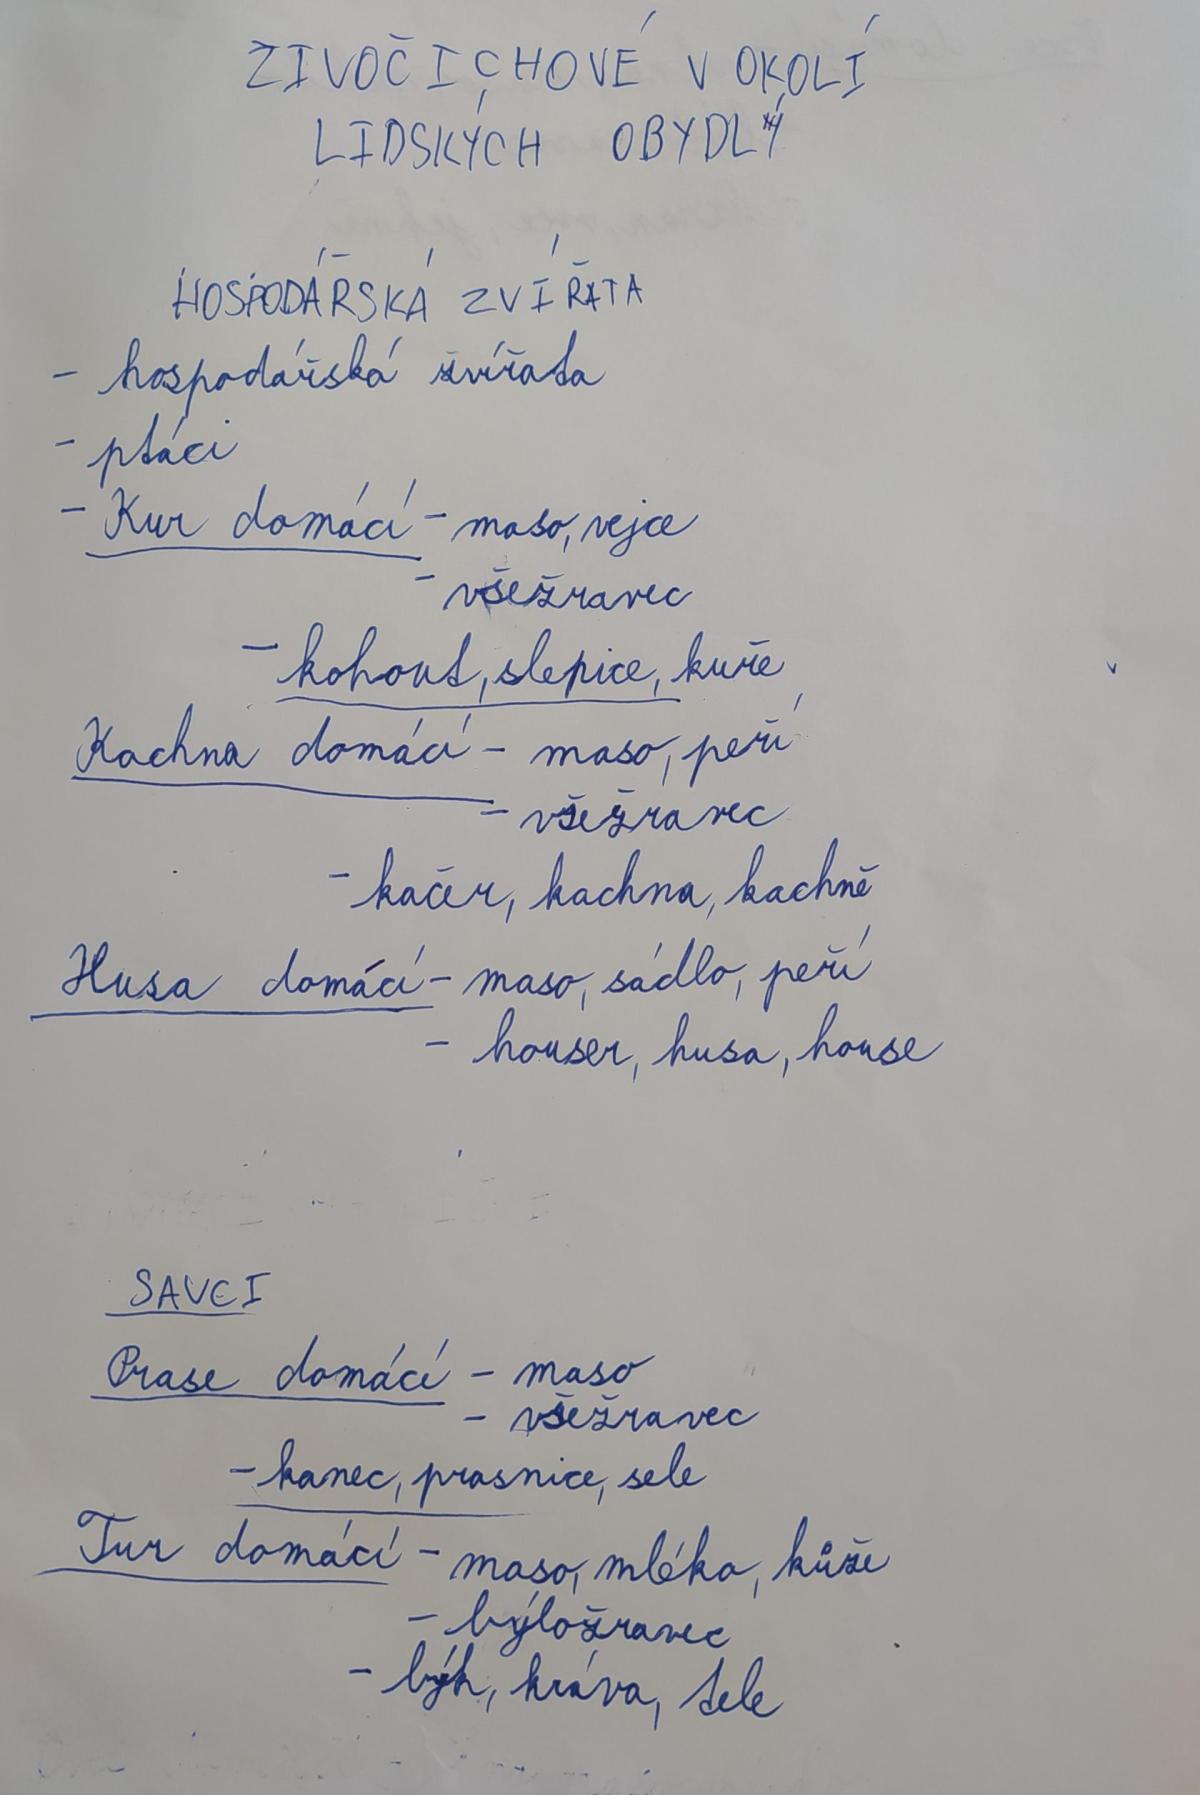 ZIVOČICHOVÉ V OKOLÍ
LIDSKÝCH OBYDLÝ
HOSPODÁŘSKÁ ZVÍŘATA
- hospodářská žvířata
- ptáci
- Kur domácí - maso, vejce
- všežravec
- kohout, slepice, kuře
Kachna domácí - maso, peří
- všežravec
- kačer, kachna, kachně
Husa domácí - maso, sádlo, peří
- houser, husa, house
SAVCI
Prase domácí - maso
- všežravec
- kanec, prasnice, sele
Tur domácí - maso, mléko, kůže
- býložravec
- býk, kráva, tele